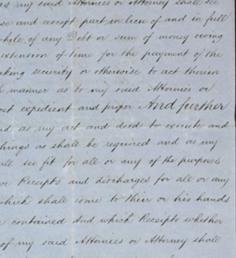 as my said Attornies or Attorney shall see
se and accept part in lieu of and in full
whole of any Debt or sum of money owing
extension of time for the payment of the
king security or otherwise to act therein
h manner as to my said Attornies or
ost expedient and proper And further
nd as my act and deed to execute and
things as shall be required and as my
all see fit for all or any of the purposes
ve Receipts and discharges for all or any
which shall come to their or his hands
n contained And which Receipts whether
of my said Attornies or Attorney shall